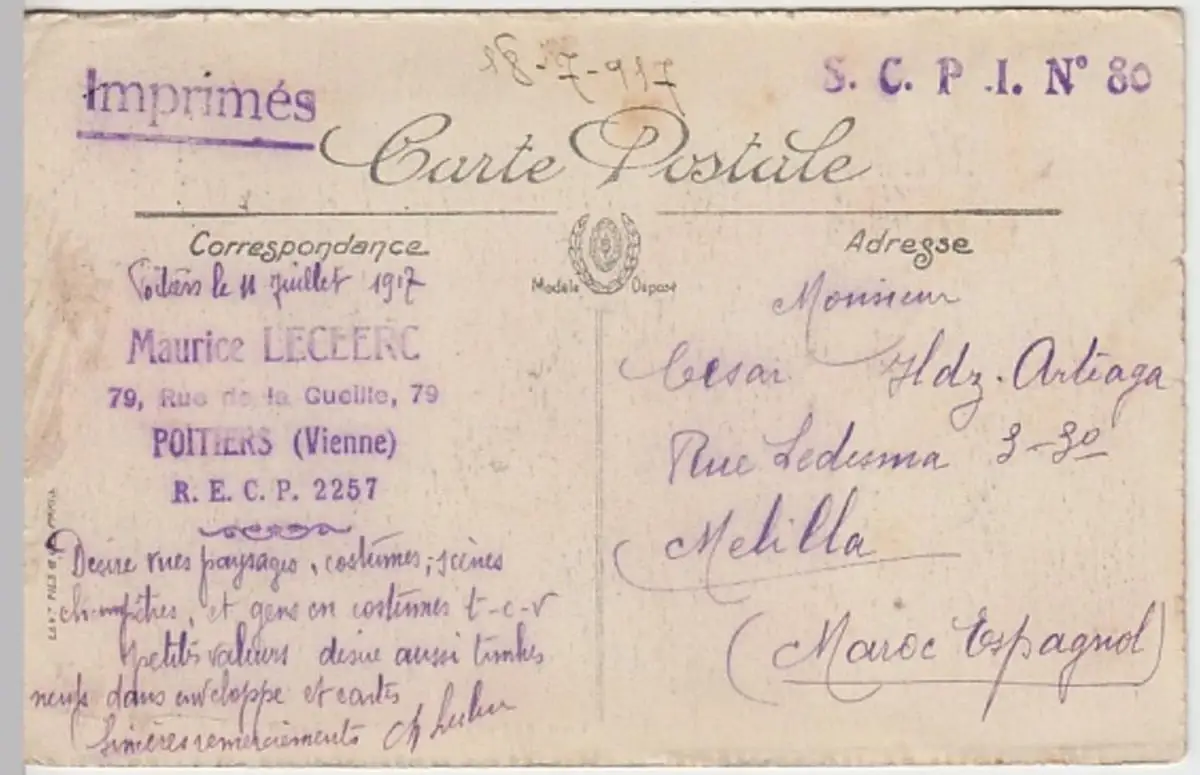 Imprimés
18-7-917
S. C. P. I. N° 80
Carte Postale
Correspondance
Adresse
Modèle Déposé
Poitiers le 11 Juillet 1917
Maurice LECLERC
79, Rue de la Gueille, 79
POITIERS (Vienne)
R. E. C. P. 2257
Desire vues paysages, costumes, scènes
champêtres, et gens en costumes t-c-v
petits valeurs desire aussi timbres
neufs dans enveloppe et cartes
Sincères remerciements
Monsieur
Cesar Hdz. Artiaga
Rue Ledesma 3-3º
Melilla
(Maroc Espagnol)